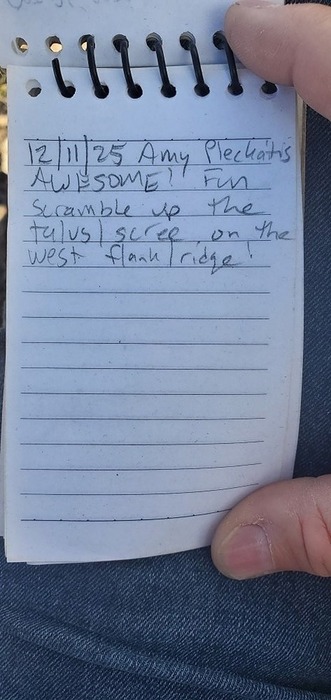 12/11/25 Amy Pleckaitis
AWESOME! Fun
scramble up the
talus/scree on the
west flank/ridge!